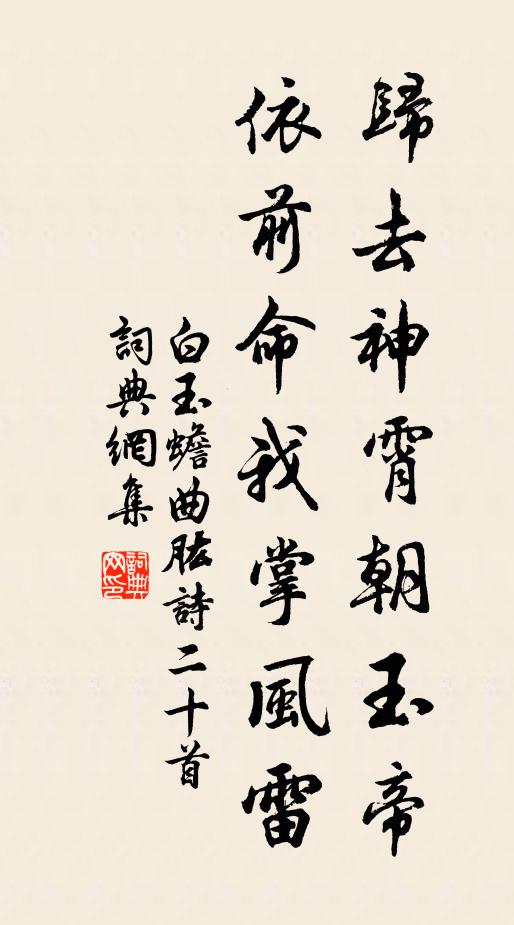 歸去神霄朝玉帝
依前命我掌風雷
白玉蟾曲肱詩二十首
詞典網集
詞典網印